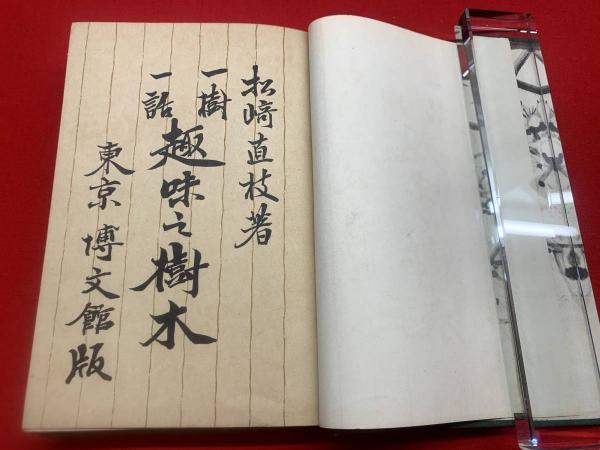 松﨑直枝著
一樹
一話
趣味之樹木
東京博文館版